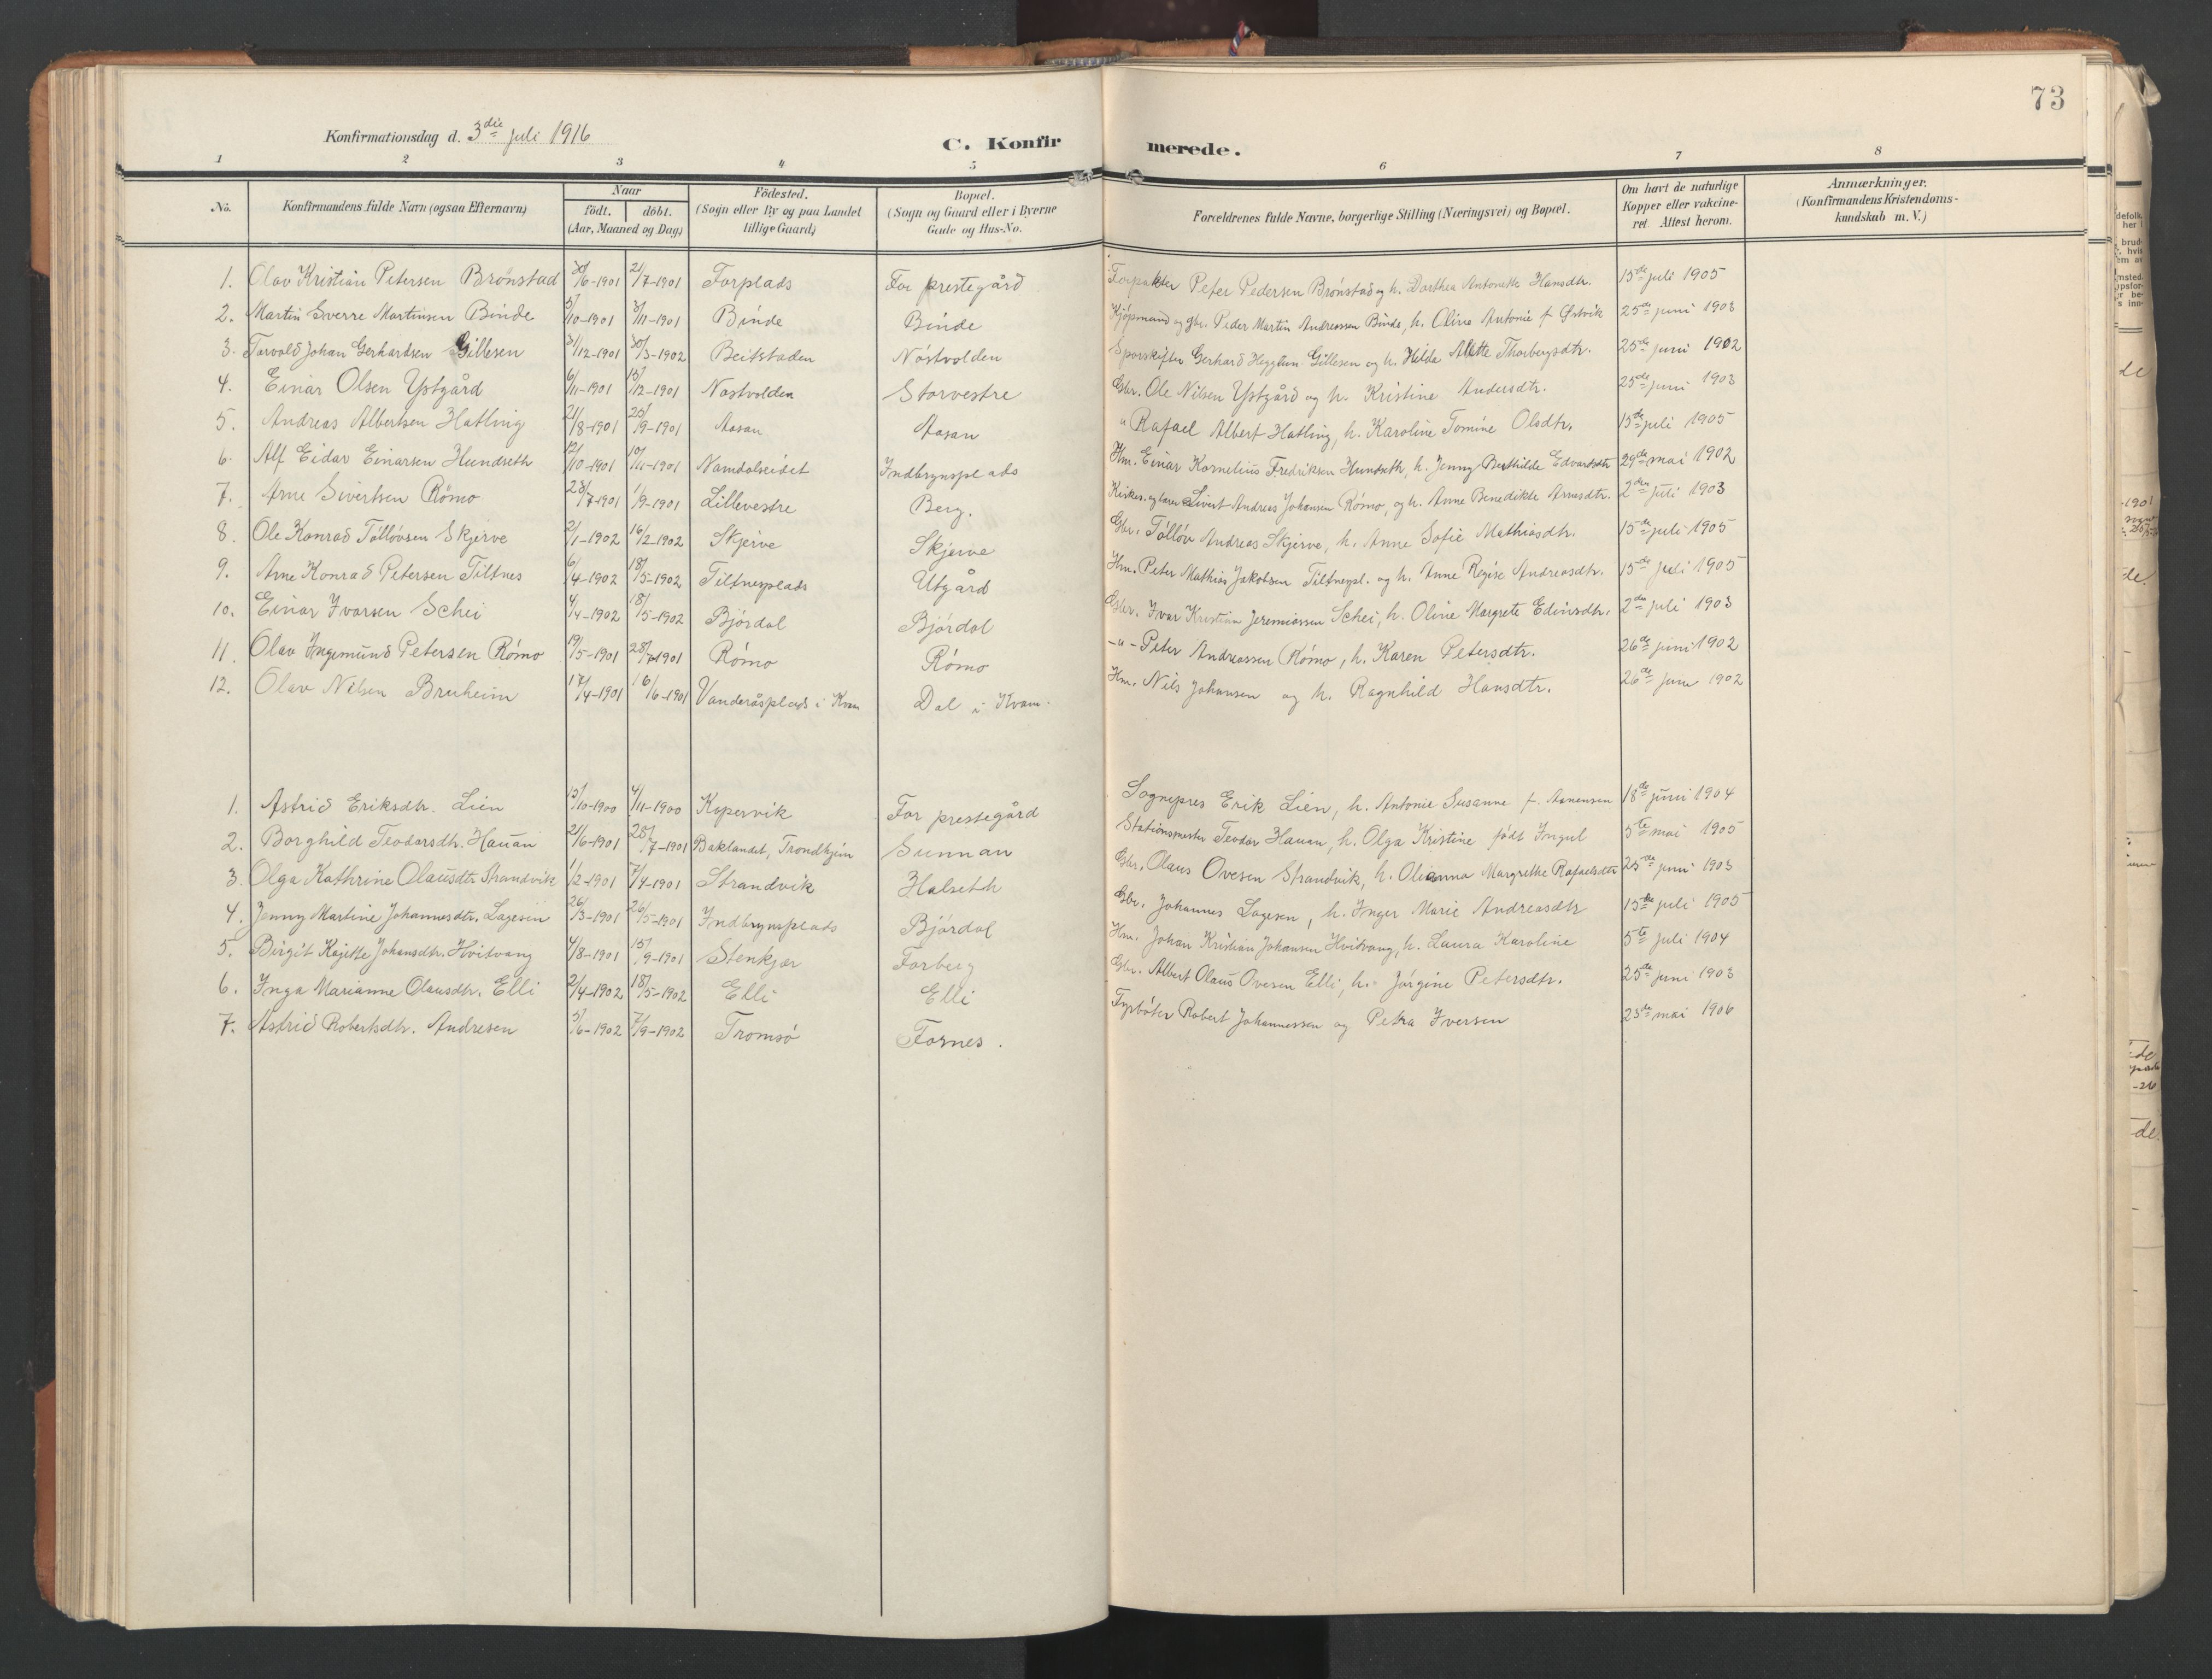 73
Konfirmationsdag d. 3die juli 1916
C. Konfirmerede.
1 2 3 4 5 6 7 8
No.
Konfirmandens fulde Navn (ogsaa Efternavn)
Naar
födt. döbt.
(Aar, Maaned og Dag)
Födested.
(Sogn eller By og paa Landet
tillige Gaard)
Bopæl.
(Sogn og Gaard eller i Byerne
Gade og Hus-No.
Forældrenes fulde Navne, borgerlige Stilling (Næringsvei) og Bopæl.
Om havt de naturlige
Kopper eller vakcine-
ret. Attest herom.
Anmærkninger.
(Konfirmandens Kristendoms-
kundskab m. V.)
1. Olav Kristian Petersen Brønstad 30/6-1901 21/7-1901 Forplads For prestegård Forpakter Peter Pedersen Brønstad og h. Dorthea Antonette Hansdtr. 15de juli 1905
2. Martin Sverre Martinsen Binde 5/10-1901 3/11-1901 Binde Binde Kjøpmand og gbr. Peder Martin Andreassen Binde, h. Oline Antonie f. Østvik 25de juni 1903
3. Torvald Johan Gerhardsen Gillesen 31/12-1901 30/3-1902 Beitstaden Nøstvolden Sporskifter Gerhard Heggelun Gillesen og h. Hilda Alette Thorbergsdtr. 25de juni 1902
4. Einar Olsen Ystgård 6/11-1901 15/12-1901 Nøstvolden Storvestre Gbr. Ole Nilsen Ystgård og h. Kristine Andersdtr. 25de juni 1903
5. Andreas Albertsen Hatling 21/8-1901 25/9-1901 Aasan Aasan " Rafael Albert Hatling, h. Karoline Tomine Olsdtr. 15de juli 1905
6. Alf Eidar Einarsen Hundseth 12/10-1901 10/11-1901 Namdalseidet Indbrynsplads Hm. Einar Kornelius Fredriksen Hundseth, h. Jenny Berthilde Edvardsdtr 29de mai 1902
7. Arne Sivertsen Rømo 28/7-1901 1/9-1901 Lillevestre Berg. Kirkes. og lærer Sivert Andreas Johansen Rømo, og h. Anne Benedikte Arnesdtr. 2den juli 1903
8. Ole Konrad Tølløvsen Skjerve 2/1-1902 16/2-1902 Skjerve Skjerve Gbr. Tølløv Andreas Skjerve, h. Anne Sofie Mathiasdtr. 15de juli 1905
9. Arne Konrad Petersen Tiltnes 6/4-1902 18/5-1902 Tiltnesplads Utgård Hm. Peter Mathias Jakobsen Tiltnespl. og h. Anne Regise Andreasdtr. 15de juli 1905
10. Einar Ivarsen Schei 4/4-1902 18/5-1902 Bjørdal Bjørdal Gbr. Ivar Kristian Jeremiassen Schei, h. Oline Margrete Edinsdtr. 2den juli 1903
11. Olav Ingemund Petersen Rømo 19/5-1901 28/7-1901 Rømo Rømo -"- Peter Andreassen Rømo, h. Karen Petersdtr. 26de juni 1902
12. Olav Nilsen Bruheim 17/4-1901 16/6-1901 Vanderåsplads i Kvam Dal i Kvam. Hm. Nils Johansen og h. Ragnhild Hansdtr. 26de juni 1902
1. Astrid Eriksdtr. Lien 15/10-1900 4/11-1900 Kopervik For prestegård Sognepres Erik Lien, h. Antonie Susanne f. Aanensen 18de juni 1904
2. Borghild Teodorsdtr. Hauan 21/6-1901 28/7-1901 Baklandet, Trondhjem Sunnan Stationsmester Teodor Hauan, h. Olga Kristine født Ingul 5te mai 1905
3. Olga Kathrine Olausdtr Strandvik 1/2-1901 7/4-1901 Strandvik Halseth Gbr. Olaus Ovesen Strandvik, h. Olianna Margrethe Rafaelsdtr 25de juni 1903
4. Jenny Martine Johannesdtr. Lagesen 26/3-1901 26/5-1901 Indbrynsplads Bjørdal Gbr. Johannes Lagesen, h. Inger Marie Andreasdtr 15de juli 1905
5. Birgit Kajette Johansdtr. Hvitvang 4/8-1901 15/9-1901 Stenkjær Forberg Hm. Johan Kristian Johansen Hvitvang, h. Laura Karoline 5te juli 1904
6. Inga Marianne Olausdtr. Elli 2/4-1902 18/5-1902 Elli Elli Gbr. Albert Olaus Ovesen Elli, h. Jørgine Petersdtr. 25de juni 1903
7. Astrid Robertsdtr. Andresen 5/6-1902 7/9-1902 Tromsø Fornes. Fyrbøter Robert Johannessen og Petra Iversen 25de mai 1906